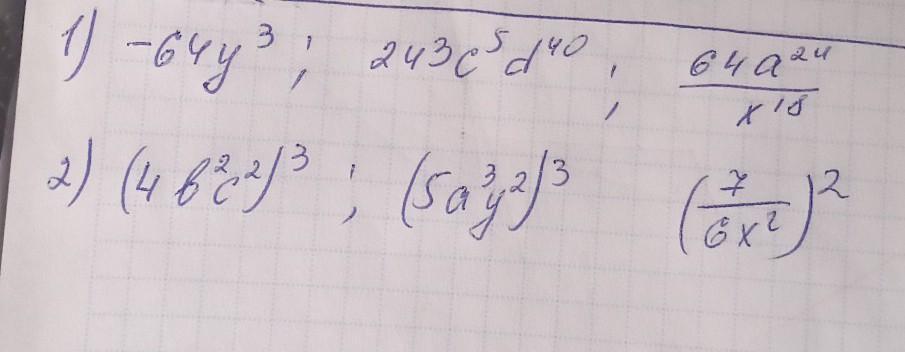 1) -64y³ ; 243c⁵d⁴⁰ ; 64a²⁴/x¹⁸
2) (4b²c²)³ ; (5a³y²)³ (7/6x²)²